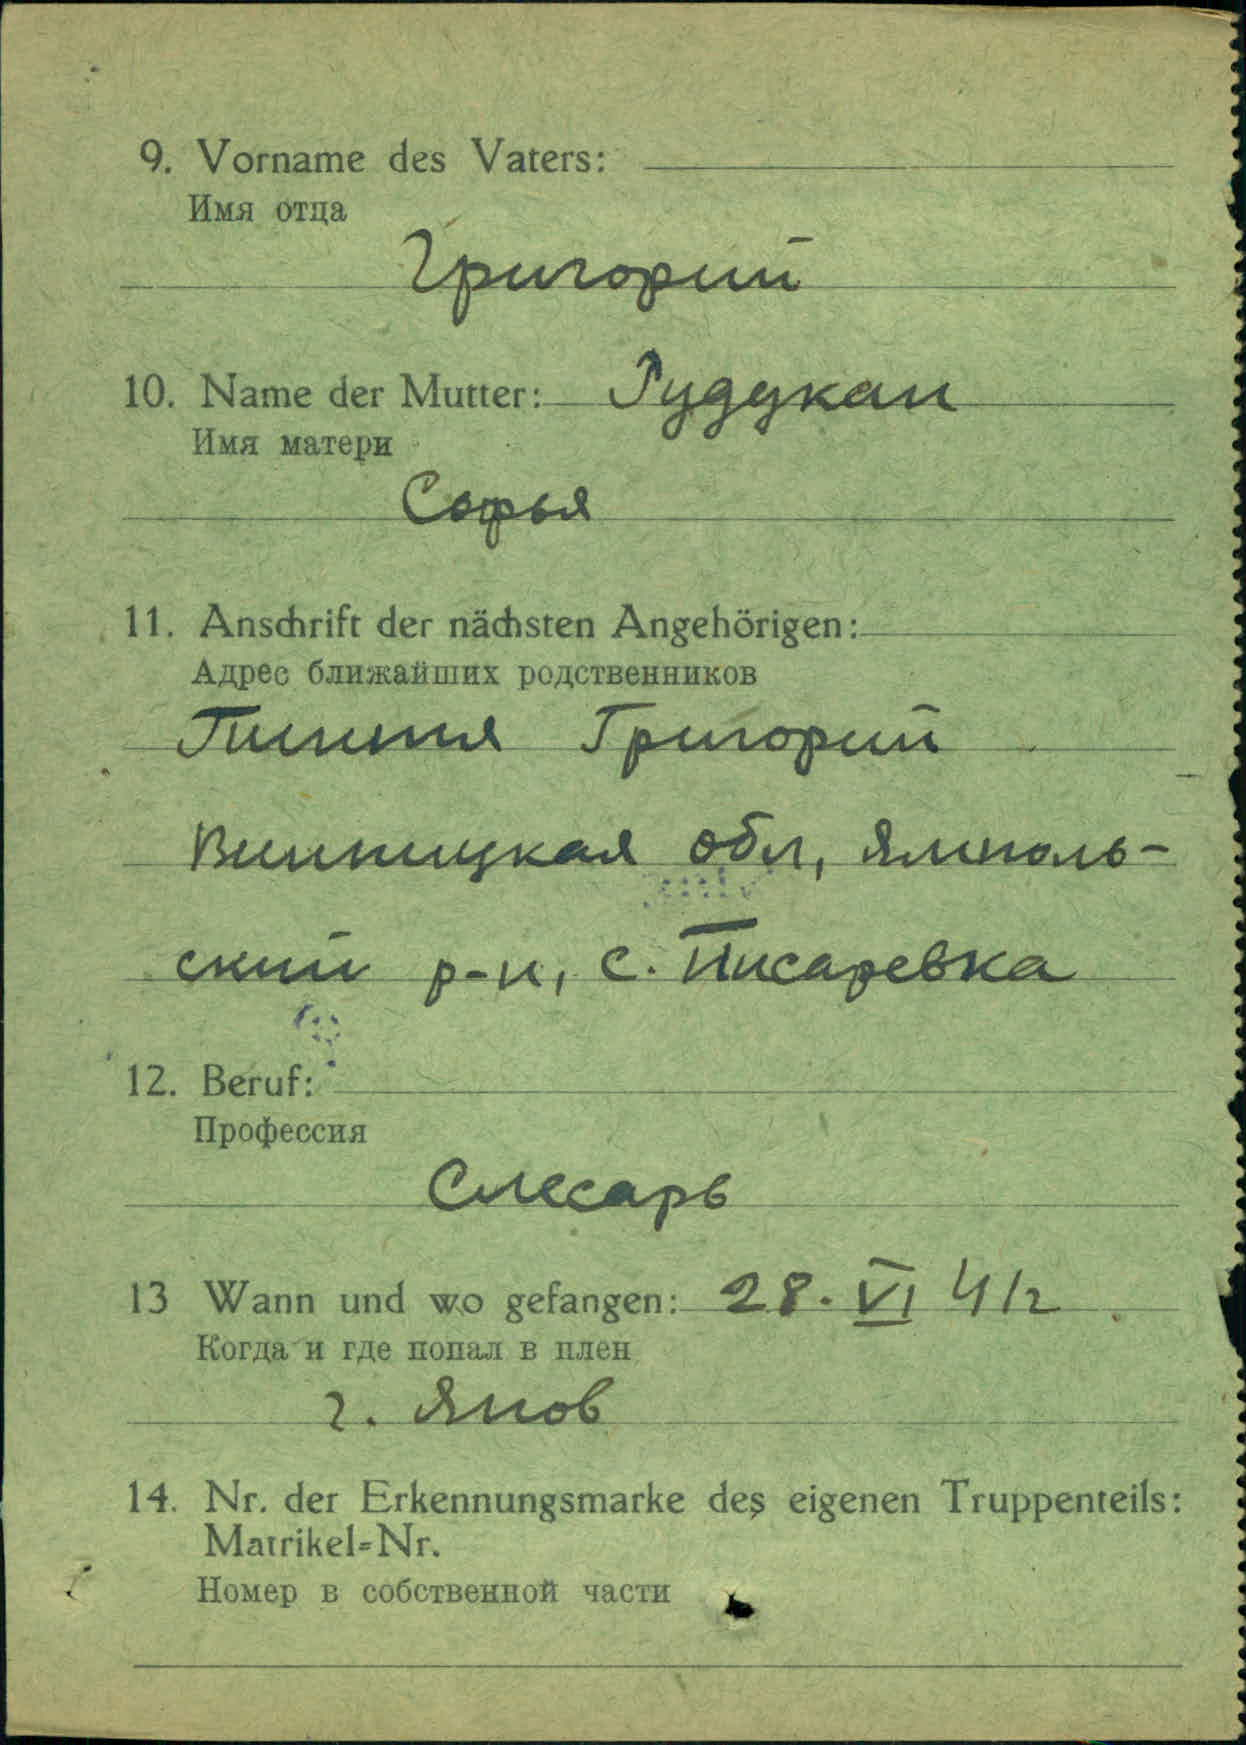 9. Vorname des Vaters:
Имя отца
Григорий
10. Name der Mutter: Рудукан
Имя матери
Софья
11. Anschrift der nächsten Angehörigen:
Адрес ближайших родственников
Григорий
Винницкая обл, Ямполь-
ский р-н, с. Писаревка
12. Beruf:
Профессия
Слесарь
13 Wann und wo gefangen: 28. VI 41г
Когда и где попал в плен
г. Янов
14. Nr. der Erkennungsmarke des eigenen Truppenteils:
Matrikel=Nr.
Номер в собственной части